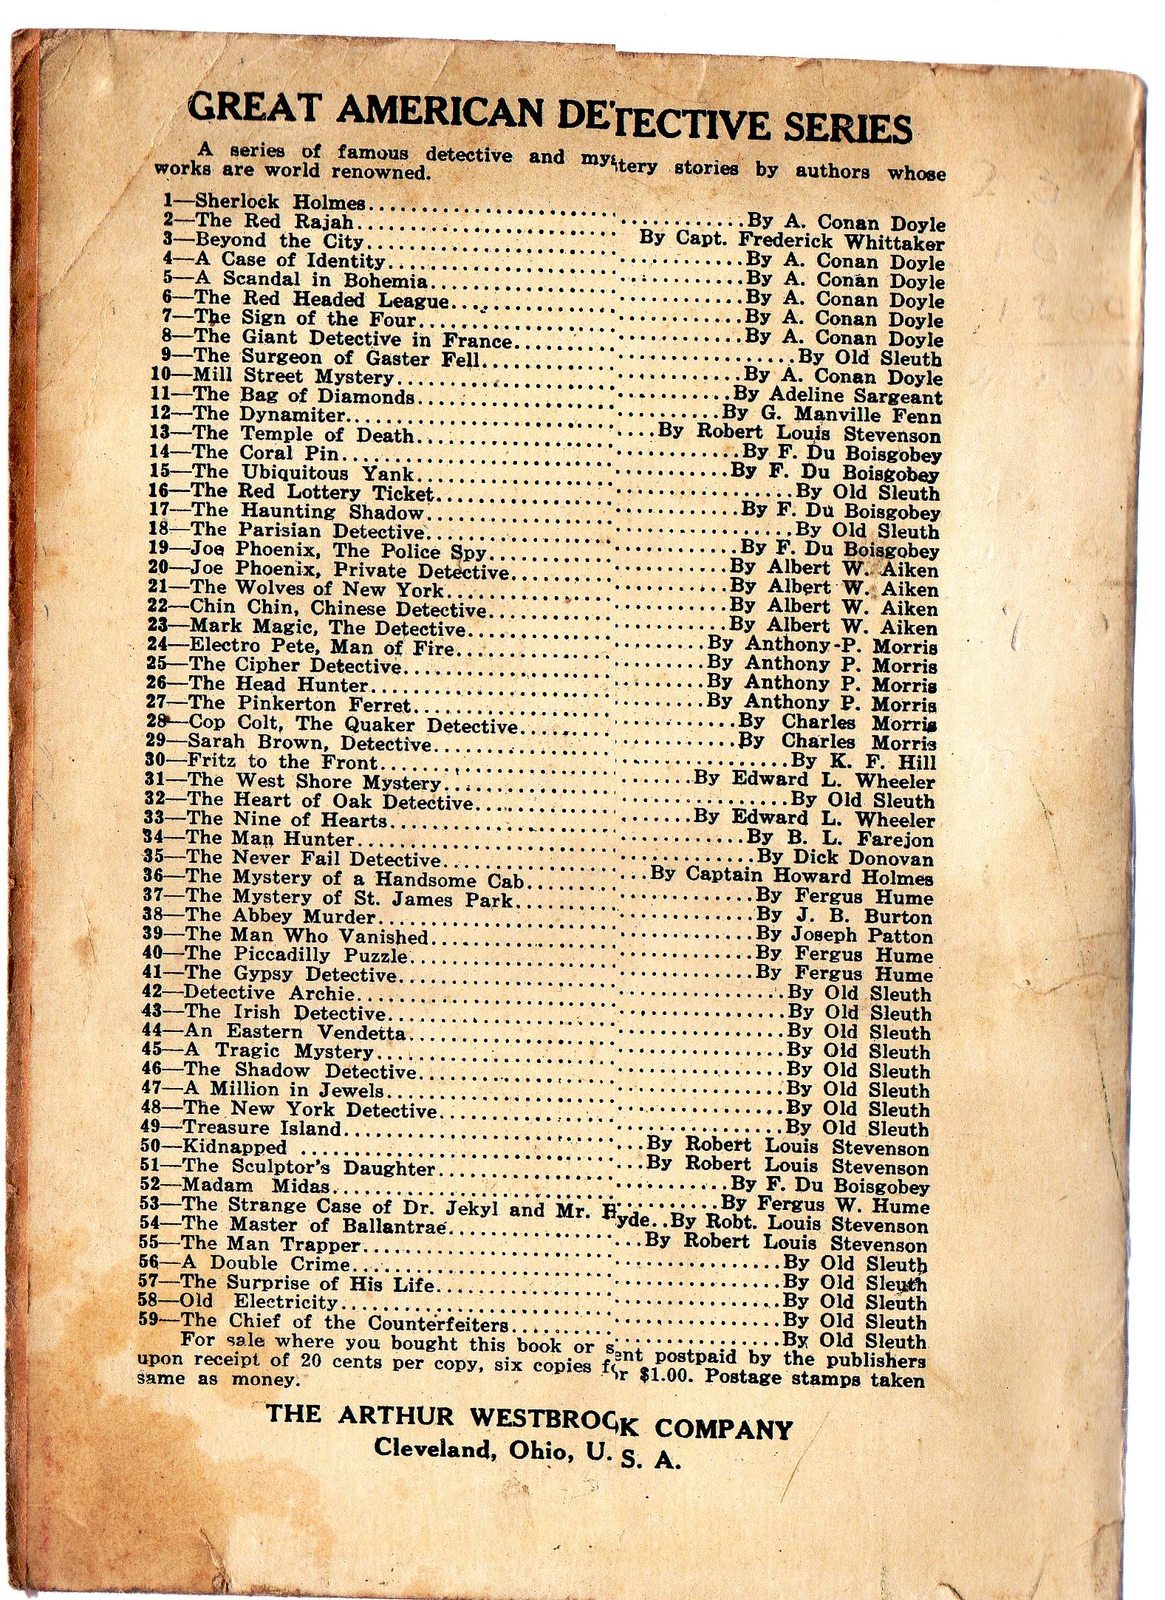 GREAT AMERICAN DETECTIVE SERIES
A series of famous detective and mystery stories by authors whose
works are world renowned.
1—Sherlock Holmes..........By A. Conan Doyle
2—The Red Rajah..........By Capt. Frederick Whittaker
3—Beyond the City..........By A. Conan Doyle
4—A Case of Identity..........By A. Conan Doyle
5—A Scandal in Bohemia..........By A. Conan Doyle
6—The Red Headed League..........By A. Conan Doyle
7—The Sign of the Four..........By A. Conan Doyle
8—The Giant Detective in France..........By Old Sleuth
9—The Surgeon of Gaster Fell..........By A. Conan Doyle
10—Mill Street Mystery..........By Adeline Sargeant
11—The Bag of Diamonds..........By G. Manville Fenn
12—The Dynamiter..........By Robert Louis Stevenson
13—The Temple of Death..........By F. Du Boisgobey
14—The Coral Pin..........By F. Du Boisgobey
15—The Ubiquitous Yank..........By Old Sleuth
16—The Red Lottery Ticket..........By F. Du Boisgobey
17—The Haunting Shadow..........By Old Sleuth
18—The Parisian Detective..........By F. Du Boisgobey
19—Joe Phoenix, The Police Spy..........By Albert W. Aiken
20—Joe Phoenix, Private Detective..........By Albert W. Aiken
21—The Wolves of New York..........By Albert W. Aiken
22—Chin Chin, Chinese Detective..........By Albert W. Aiken
23—Mark Magic, The Detective..........By Anthony P. Morris
24—Electro Pete, Man of Fire..........By Anthony P. Morris
25—The Cipher Detective..........By Anthony P. Morris
26—The Head Hunter..........By Anthony P. Morris
27—The Pinkerton Ferret..........By Charles Morris
28—Cop Colt, The Quaker Detective..........By Charles Morris
29—Sarah Brown, Detective..........By K. F. Hill
30—Fritz to the Front..........By Edward L. Wheeler
31—The West Shore Mystery..........By Old Sleuth
32—The Heart of Oak Detective..........By Edward L. Wheeler
33—The Nine of Hearts..........By B. L. Farejon
34—The Man Hunter..........By Dick Donovan
35—The Never Fail Detective..........By Captain Howard Holmes
36—The Mystery of a Handsome Cab..........By Fergus Hume
37—The Mystery of St. James Park..........By J. B. Burton
38—The Abbey Murder..........By Joseph Patton
39—The Man Who Vanished..........By Fergus Hume
40—The Piccadilly Puzzle..........By Fergus Hume
41—The Gypsy Detective..........By Old Sleuth
42—Detective Archie..........By Old Sleuth
43—The Irish Detective..........By Old Sleuth
44—An Eastern Vendetta..........By Old Sleuth
45—A Tragic Mystery..........By Old Sleuth
46—The Shadow Detective..........By Old Sleuth
47—A Million in Jewels..........By Old Sleuth
48—The New York Detective..........By Old Sleuth
49—Treasure Island..........By Robert Louis Stevenson
50—Kidnapped ..........By Robert Louis Stevenson
51—The Sculptor's Daughter..........By F. Du Boisgobey
52—Madam Midas..........By Fergus W. Hume
53—The Strange Case of Dr. Jekyl and Mr. Hyde..By Robt. Louis Stevenson
54—The Master of Ballantrae..........By Robert Louis Stevenson
55—The Man Trapper..........By Old Sleuth
56—A Double Crime..........By Old Sleuth
57—The Surprise of His Life..........By Old Sleuth
58—Old Electricity..........By Old Sleuth
59—The Chief of the Counterfeiters..........By Old Sleuth
For sale where you bought this book or sent postpaid by the publishers
upon receipt of 20 cents per copy, six copies for $1.00. Postage stamps taken
same as money.
THE ARTHUR WESTBROOK COMPANY
Cleveland, Ohio, U. S. A.